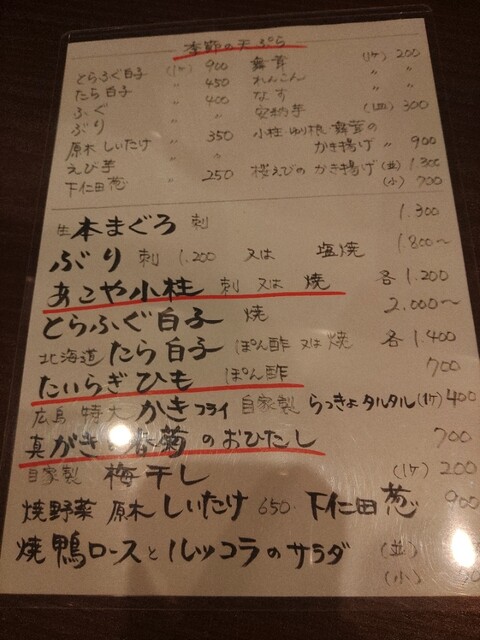 季節の天ぷら
とらふぐ白子 (1ケ) 900
たら白子 〃 450
ふぐ 〃 400
ぶり 〃 〃
原木しいたけ 〃 350
えび芋 〃 〃
下仁田葱 〃 250
舞茸 (1ケ) 200
れんこん 〃 〃
なす 〃 〃
安納芋 300
小柱・ゆり根 舞茸の
かき揚げ 〃 900
桜えびの かき揚げ (並) 1.300
(小) 700
生本まぐろ 刺 1.300
ぶり 刺 1.200 又は 塩焼 1.800〜
あこや小柱 刺 又は 焼 各 1.200
とらふぐ白子 焼 2.000〜
北海道 たら白子 ぽん酢 又は 焼 各 1.400
たいらぎひも ぽん酢 700
広島 特大 かきフライ 自家製 らっきょタルタル (1ケ) 400
真がきと春菊のおひたし 700
自家製 梅干し (1ケ) 200
焼野菜 原木しいたけ 650. 下仁田葱 900
焼鴨ロースとルッコラのサラダ (並)
(小)